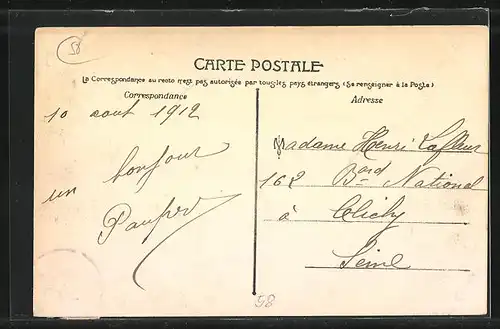 58
CARTE POSTALE
La Correspondance au recto n'est pas autorisée par tous les pays étrangers (Se renseigner à la Poste)
Correspondance
Adresse
10 aout 1912
un bonjour
Madame Henri Lafleur
162 Bard National
à Clichy
Seine
58